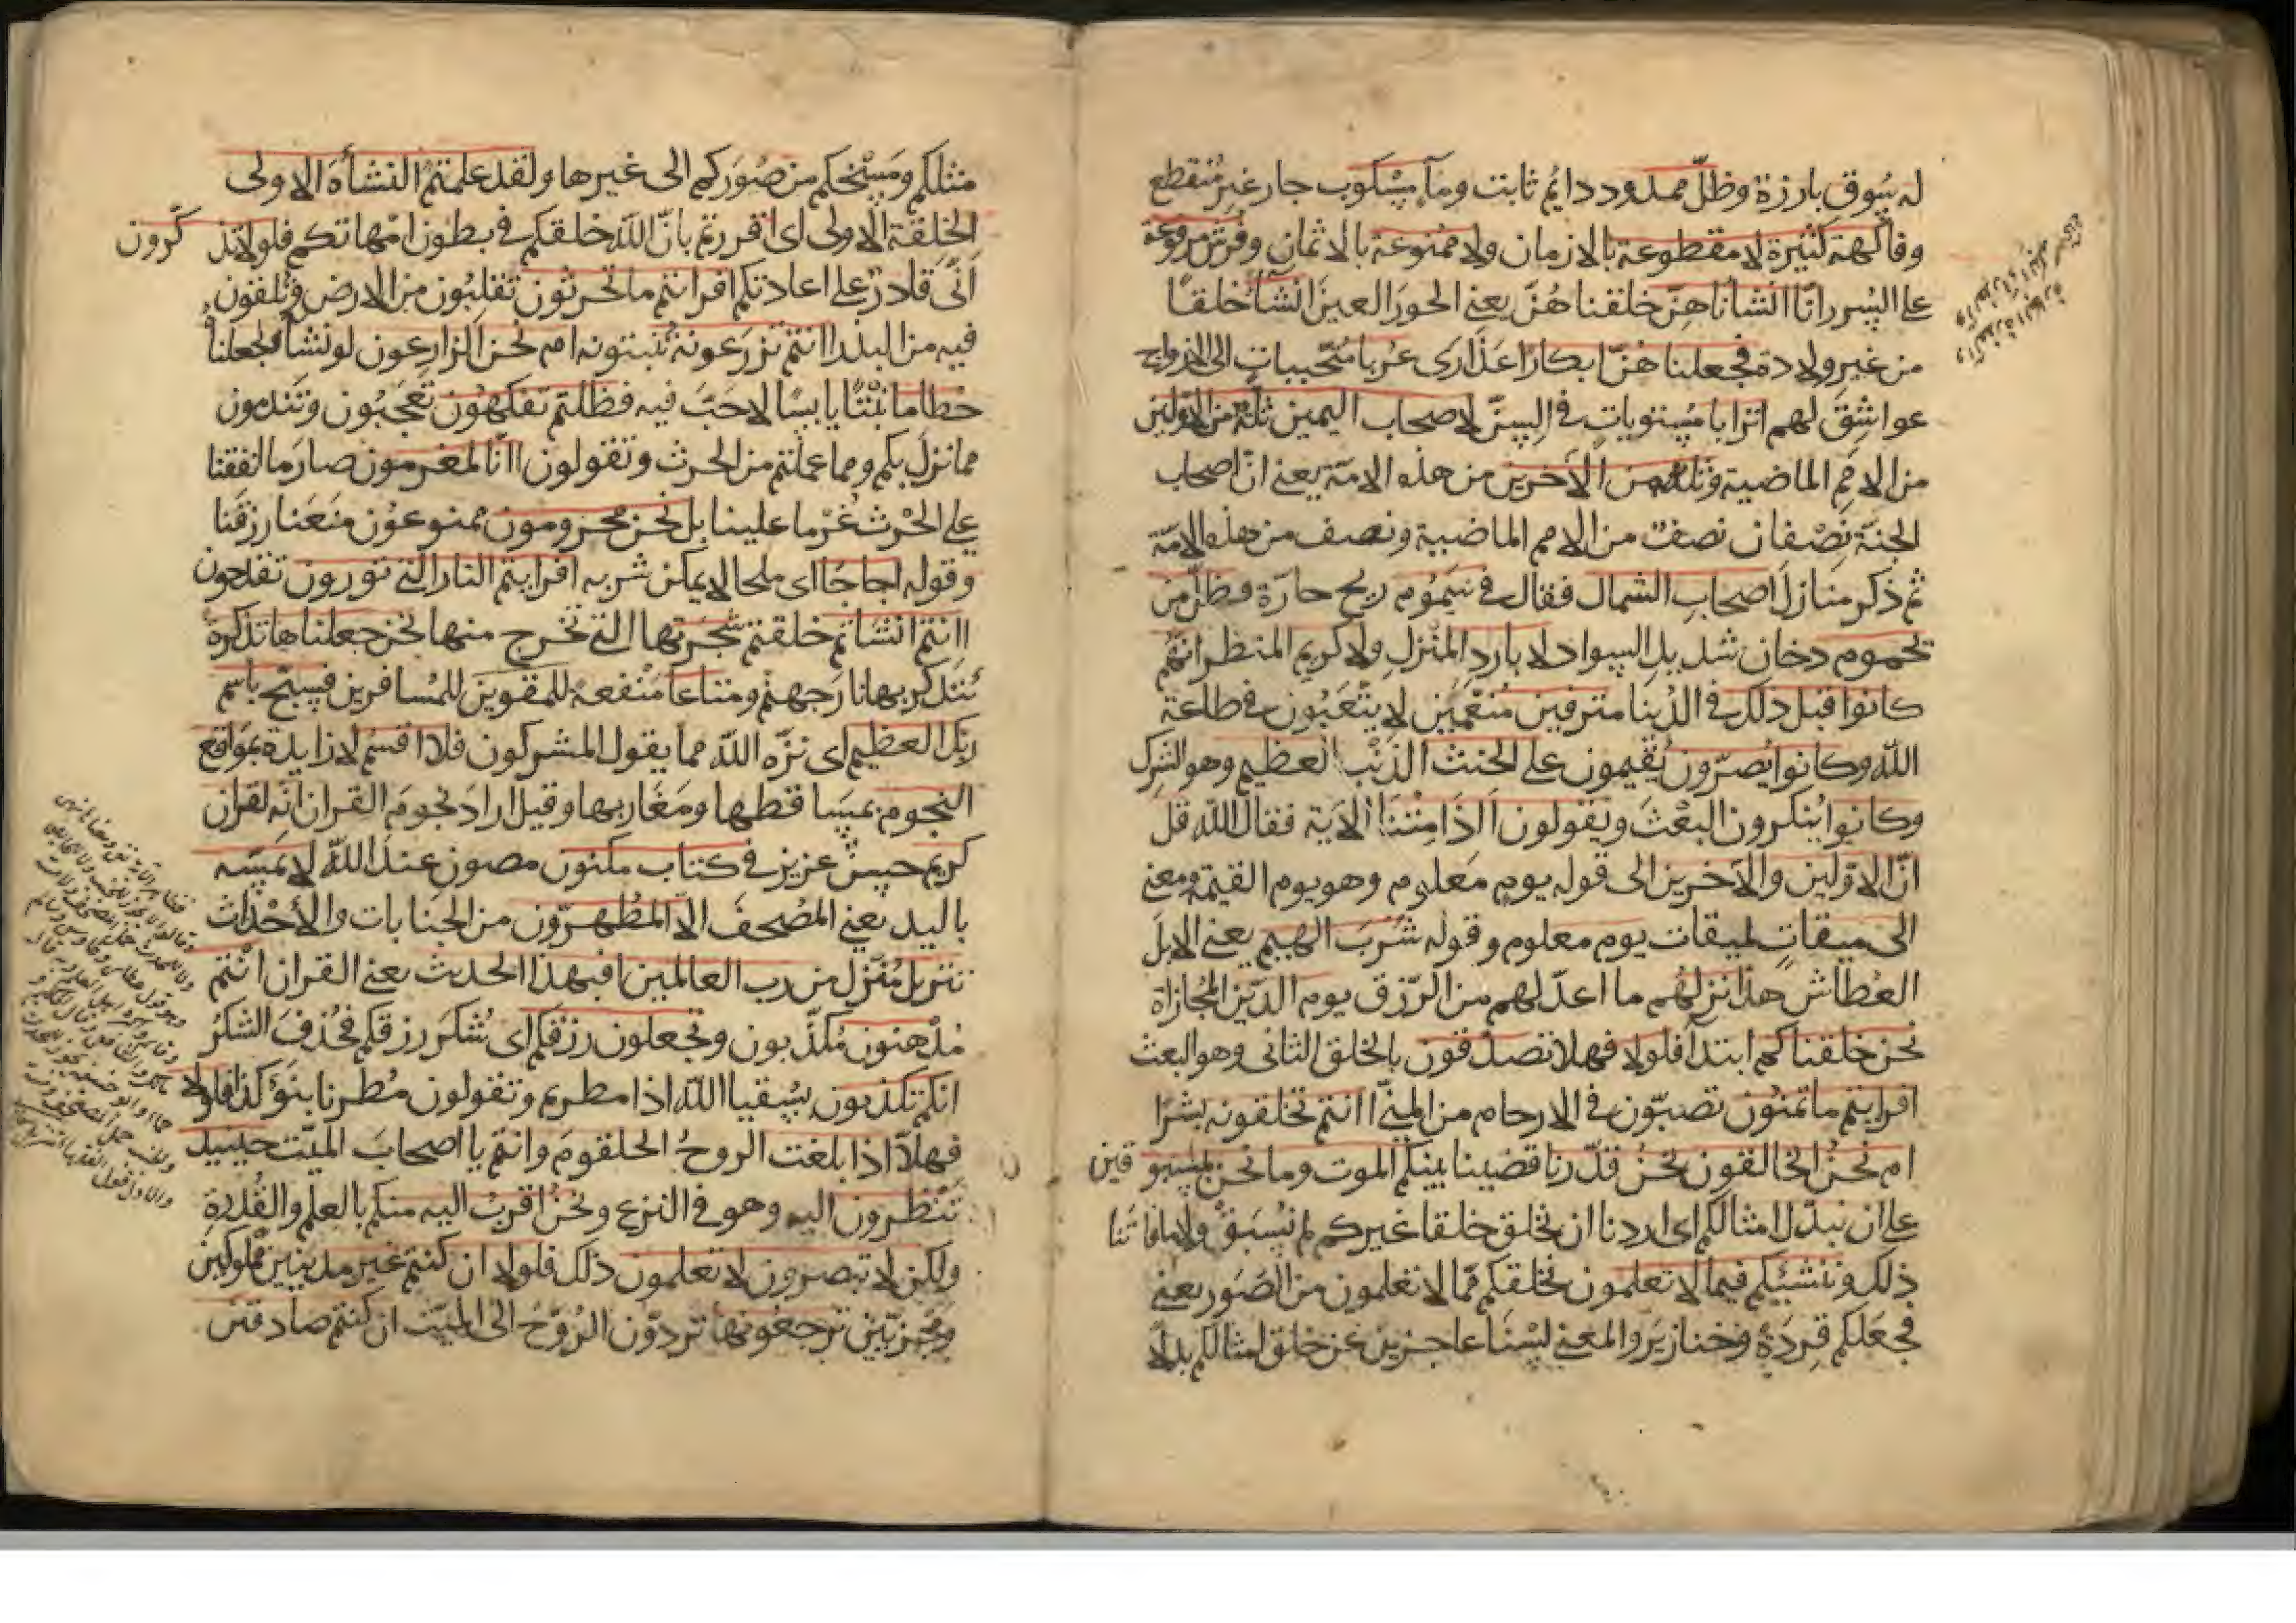 له سوق بارزة وظلّ ممدود دايم ثابت ومآء مسكوب جار غير منقطع
وفاكهة كثيرة لا مقطوعة بالازمان ولا ممنوعة بالاثمان وفرش مرفوعة
على السرر انّا انشأناهنّ خلقناهنّ يعنى الحور العين انشأ خلقا
من غير ولادة فجعلناهنّ ابكارا عذارى عربا متحببات الى الازواج
عواشق لهم اترابا مستويات فى السنّ لاصحاب اليمين ثلة من الاولين
من الامم الماضية وثلة من الآخرين من هذه الامّة يعنى انّ اصحاب
الجنّة نصفان نصف من الامم الماضية ونصف من هذه الامّة
ثم ذكر منازل اصحاب الشمال فقال فى سموم ريح حارّة وظلّ من
يحموم دخان شديد السواد لا بارد المنزل ولا كريم المنظر انهم
كانوا قبل ذلك فى الدنيا مترفين منعّمين لا يتعبون فى طاعة
الله وكانوا يصرّون يقيمون على الحنث الذنب العظيم وهو الشرك
وكانوا ينكرون البعث ويقولون اذا متنا الآية فقال الله قل
انّ الاولين والآخرين الى قوله يوم معلوم وهو يوم القيمة ومعنى
الى ميقات لميقات يوم معلوم وقوله شرب الهيم يعنى الابل
العطاش هذا نزلهم ما اعدّ لهم من الرّزق يوم الدّين المجازاة
نحن خلقناكم ابتدآ فلولا فهلا تصدقون بالخلق الثانى وهو البعث
افرايتم ما تمنون تصبّون فى الارحام من المنىّ اانتم تخلقونه بشرا
ام نحن الخالقون نحن قدّرنا قضينا بينكم الموت وما نحن بمسبوقين
على ان نبدّل امثالكم اى اردنا ان نخلق خلقا غيركم لم نسبق ولا فاتنا
ذلك وننشئكم فيما لا تعلمون نخلقكم ممّا لا تعلمون من الصور يعنى
فجعلكم قردة وخنازير والمعنى لسنا عاجزين عن خلق امثالكم بدلا
مثلكم ومسخكم من صوركم الى غيرها ولقد علمتم النشأة الاولى
الخلقة الاولى اى اقررتم بانّ الله خلقكم فى بطون امّهاتكم فلولا تذكّرون
انّى قادر على اعادتكم افرايتم ما تحرثون تقلبون من الارض وتلقون
فيه من البذر اانتم تزرعونه تنبتونه ام نحن الزارعون لو نشأ لجعلناه
حطاما نبتا يابسا لا حبّ فيه فظلتم تفكهون تعجبون وتندمون
مما نزل بكم ومما عملتم من الحرث وتقولون اانّا لمغرمون صار ما انفقنا
على الحرث غرما علينا بل نحن محرومون ممنوعون منعنا رزقنا
وقوله اجاجا اى ملحا لا يمكن شربه افرايتم النار التى تورون تقدحون
اانتم انشاتم خلقتم شجرتها التى تخرج منها نحن جعلناها تذكرة
يتذكر بها نار جهنم ومتاعا منفعة للمقوين للمسافرين فسبّح باسم
ربّك العظيم اى نزّه الله مما يقول المشركون فلا اقسم لا زايدة بمواقع
النجوم بمساقطها ومغاربها وقيل اراد نجوم القران انّه لقران
كريم حسن عزيز فى كتاب مكنون مصون عند الله لا يمسّه
باليد يعنى المصحف الا المطهرون من الجنابات والاحداث
تنزيل منزل من رب العالمين افبهذا الحديث يعنى القران انتم
مدهنون مكذّبون وتجعلون رزقكم اى شكر رزقكم فحذف الشكر
انكم تكذبون بسقيا الله اذا مطرتم وتقولون مطرنا بنوء كذا فلولا
فهلاّ اذا بلغت الروح الحلقوم وانتم يا اصحاب الميّت حينئيذ
تنظرون اليه وهو فى النزع ونحن اقرب اليه منكم بالعلم والقدرة
ولكن لا تبصرون لا تعلمون ذلك فلولا ان كنتم غير مدينين مملوكين
ومجزيّين ترجعونها تردّون الروح الى الميّت ان كنتم صادقين